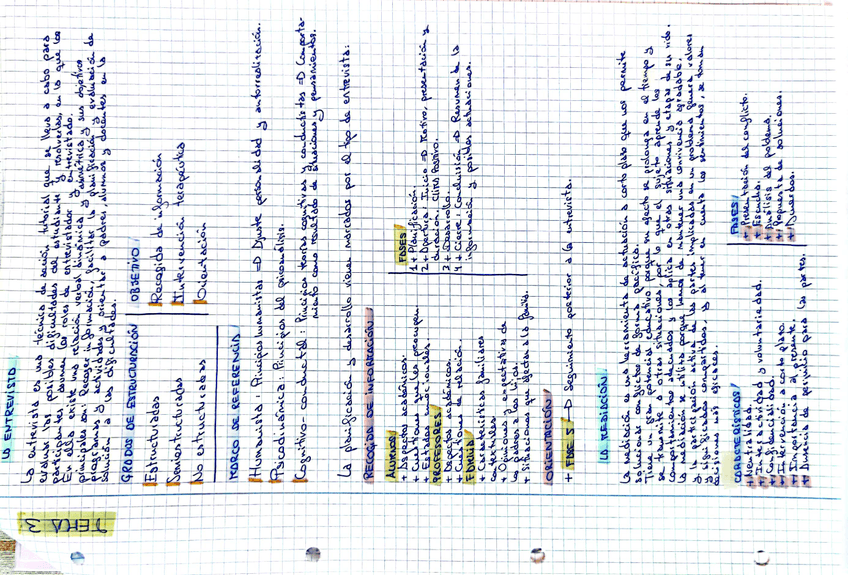 TEMA 3
LA ENTREVISTA
La entrevista es una técnica de acción tutorial que se lleva a cabo para
evaluar las posibles dificultades del estudiante y resolverlas, en la que los
participantes asumen los roles de entrevistador y entrevistado.
En ella existe una relación verbal dinámica y asimétrica y sus objetivos
principales son: Recoger información, facilitar la planificación y evaluación de
programas y actividades y orientar a padres, alumnos y docentes en la
solución a las dificultades.
GRADOS DE ESTRUCTURACIÓN
Estructuradas
Semiestructuradas
No estructuradas
OBJETIVO
Recogida de información
Intervención terapéutica
Orientación
MARCO DE REFERENCIA
Humanista: Principios humanistas => Ajuste personalidad y autorrealización.
Psicodinámica: Principios del psicoanálisis.
Cognitivo-conductual: Principios teorías cognitivas y conductistas => Comporta-
miento como resultado de situaciones y pensamientos.
La planificación y desarrollo vienen marcados por el tipo de entrevista:
RECOGIDA DE INFORMACIÓN
ALUMNOS
+ Aspectos académicos.
+ Cuestiones que les preocupen.
+ Estados emocionales.
PROFESORES
+ Aspectos académicos.
+ Cuestiones de relación.
FAMILIA
+ Características familiares
generales
+ Opiniones y expectativas de
los padres a los hijos.
+ Situaciones que afectan a la familia.
FASES
1 + Planificación.
2 + Apertura: Inicio => Motivo, presentación y
duración. Clima Positivo.
3 + Desarrollo.
4 + Cierre: Conclusión => Resumen de la
información y posibles actuaciones.
ORIENTACIÓN
+ FASE 5 => Seguimiento posterior a la entrevista.
LA MEDIACIÓN
La mediación es una herramienta de actuación a corto plazo que nos permite
solucionar conflictos de forma pacífica.
Tiene un gran potencial educativo porque su efecto se prolonga en el tiempo y
se transmite a otras situaciones, por lo que el sujeto aprende los
comportamientos adecuados y los aplica en otras situaciones y etapas de su vida.
La mediación se utiliza porque hemos de mantener una convivencia agradable.
y la participación activa de las partes implicadas en un problema genera valores
y significados compartidos, y al tener en cuenta los sentimientos, se toman
decisiones más eficaces.
CARACTERÍSTICAS
+ Neutralidad.
+ Interactividad y voluntariedad.
+ Confidencialidad.
+ Intervención a corto plazo.
+ Importancia al presente.
+ Ausencia de perjuicio para las partes.
FASES
+ Presentación del conflicto.
+ Escucha.
+ Análisis del problema.
+ Propuesta de soluciones.
+ Acuerdos.